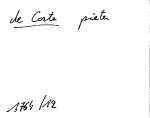 de Coste pieter
1764/12